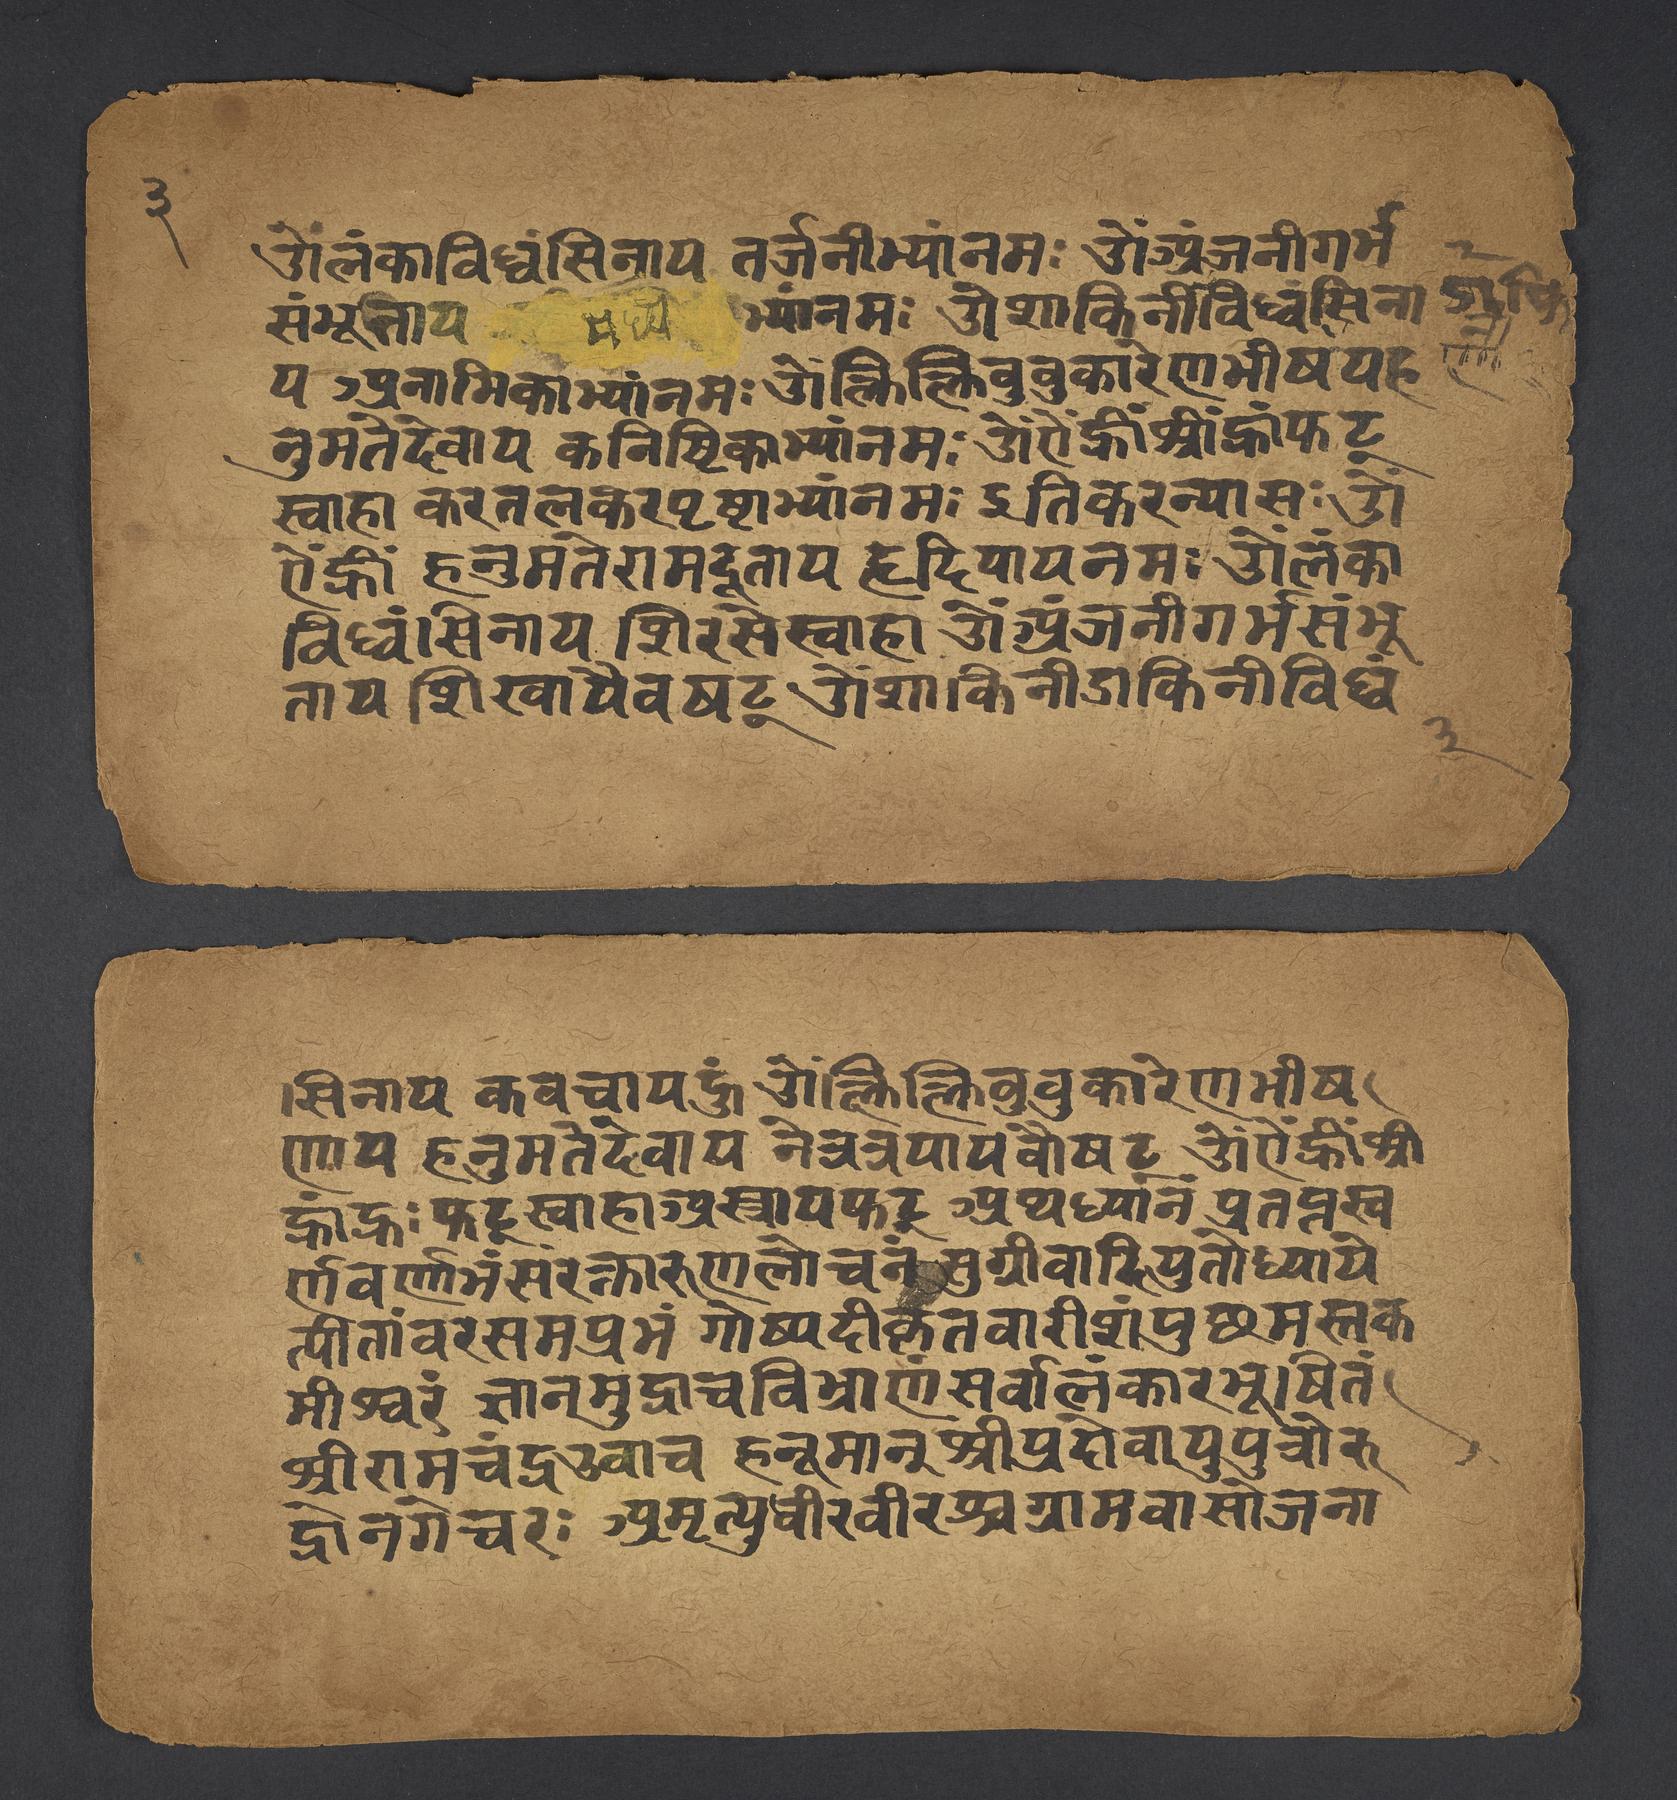 ३
ॐलंकाविध्वंसिनाय तर्जनीभ्यांनमः ॐअंजनीगर्भ
संभूताय मध्य भ्यांनमः ॐशाकिनीविध्वंसिना
य अनामिकाभ्यांनमः ॐकिलिकिलिवुवुकारेणभीषयह
नुमतेदेवाय कनिष्टिकाभ्यांनमः ॐऐंह्रींश्रींह्रांफट्
स्वाहा करतलकरपृष्टाभ्यांनमः इतिकरन्यासः ॐ
ऐंह्रीं हनुमंतेरामदूताय हृदियायनमः ॐलंका
विध्वंसिनाय शिरसेस्वाहा ॐअंजनीगर्भसंभू
ताय शिखायैवषट् ॐशाकिनीडाकिनीविध्वं
३
सिनाय कवचायहुं ॐकिलिकिलिवुवुकारेणभीष
णाय हनुमतेदेवाय नेत्रत्रयायवौषट् ॐऐंह्रींश्री
ह्रांह्रः फट्स्वाहाअस्त्रायफट् अथध्यानं प्रतप्तस्व
र्णवर्णाभंसंरक्तारुणलोचनं सुग्रीवादियुतोध्याये
त्पीतांवरसमप्रभं गोष्पदीकृतवारीशंपुछमस्तक
मीश्वरं ज्ञानमुद्राचविभ्राणंसर्वालंकारभूषितं
श्रीरामचंद्रउवाच हनूमानुश्रीप्रदोवायुपुत्रोरु
द्रोनगेच्वरः अमृत्युवीरवीरश्चग्रामवासोजना